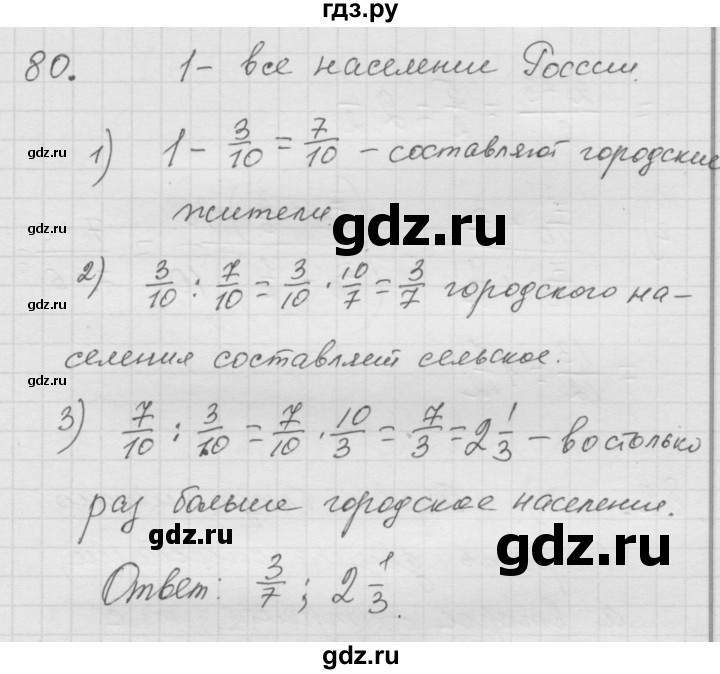 гдз.ру
80. 1 - все население России.
gdz.ru
1) 1 - 3/10 = 7/10 - составляют городские
gdz.ru
жители
gdz.ru
gdz.ru
2) 3/10 : 7/10 = 3/10 · 10/7 = 3/7 городского на-
gdz.ru
селения составляет сельское.
gdz.ru
3) 7/10 : 3/10 = 7/10 · 10/3 = 7/3 = 2 1/3 - во столько
gdz.ru
раз больше городское население.
gdz.ru
gdz.ru
Ответ: 3/7; 2 1/3.
gdz.ru
gdz.ru